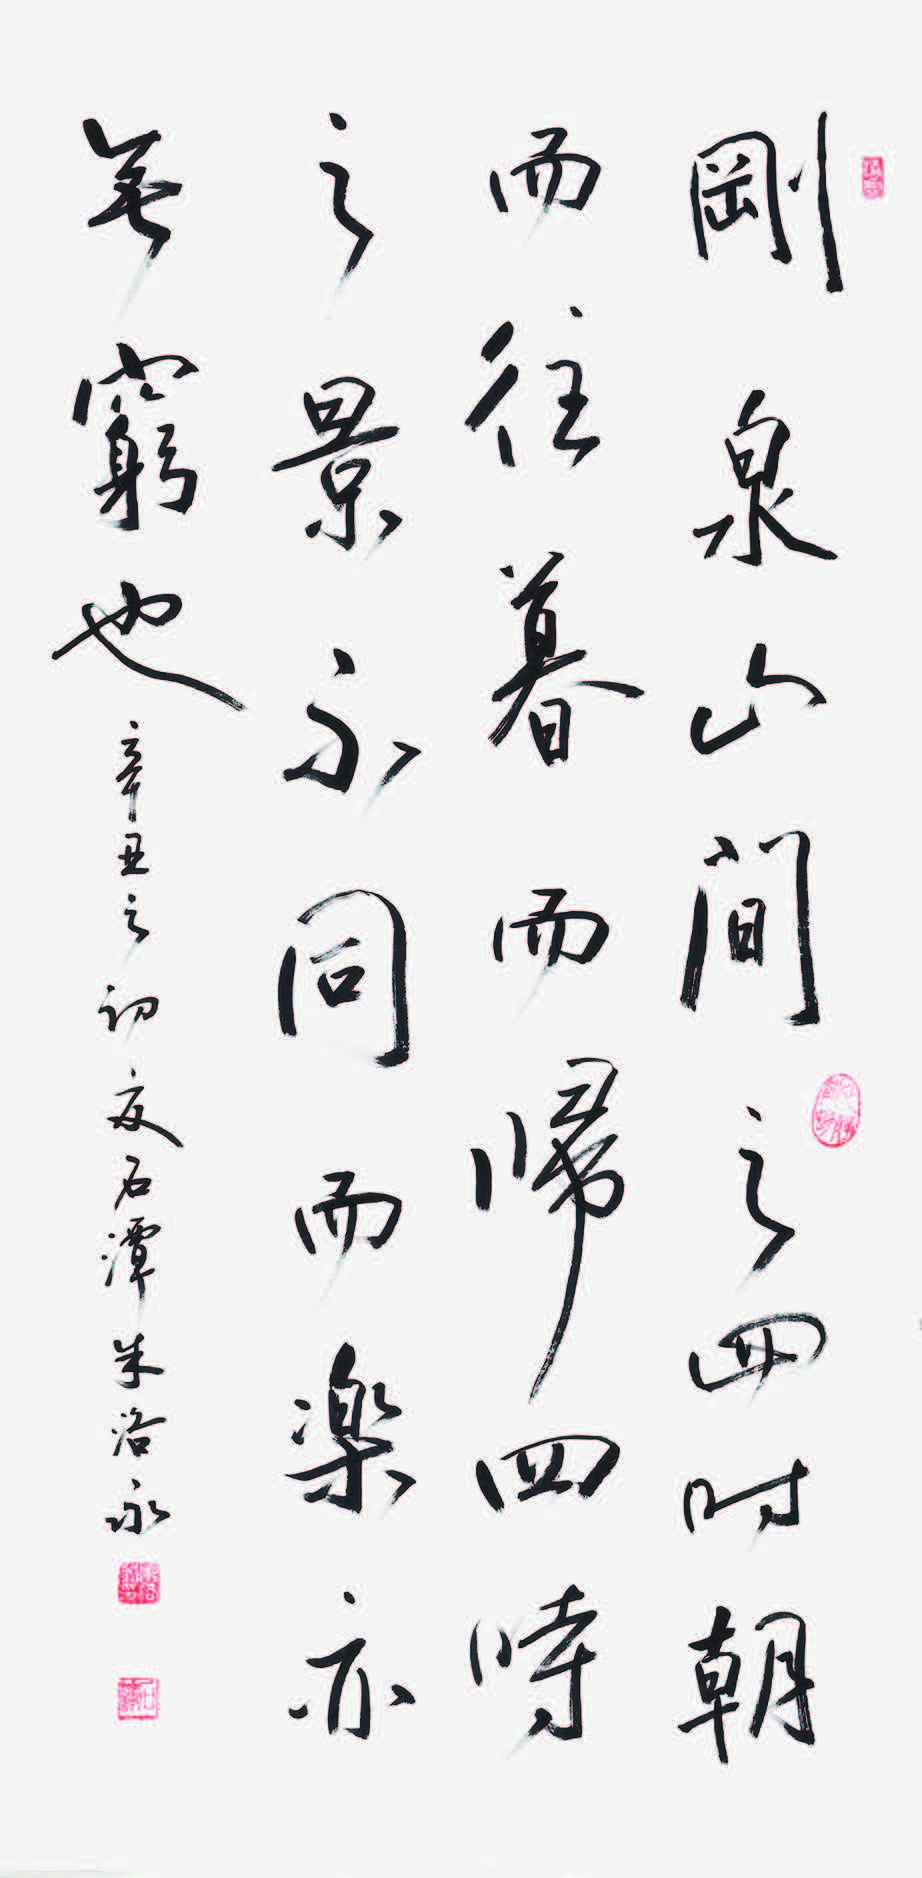 剛泉山间之四时朝
而往暮而歸四時
之景不同而楽亦
無窮也
辛丑之初夏石潭朱洛永